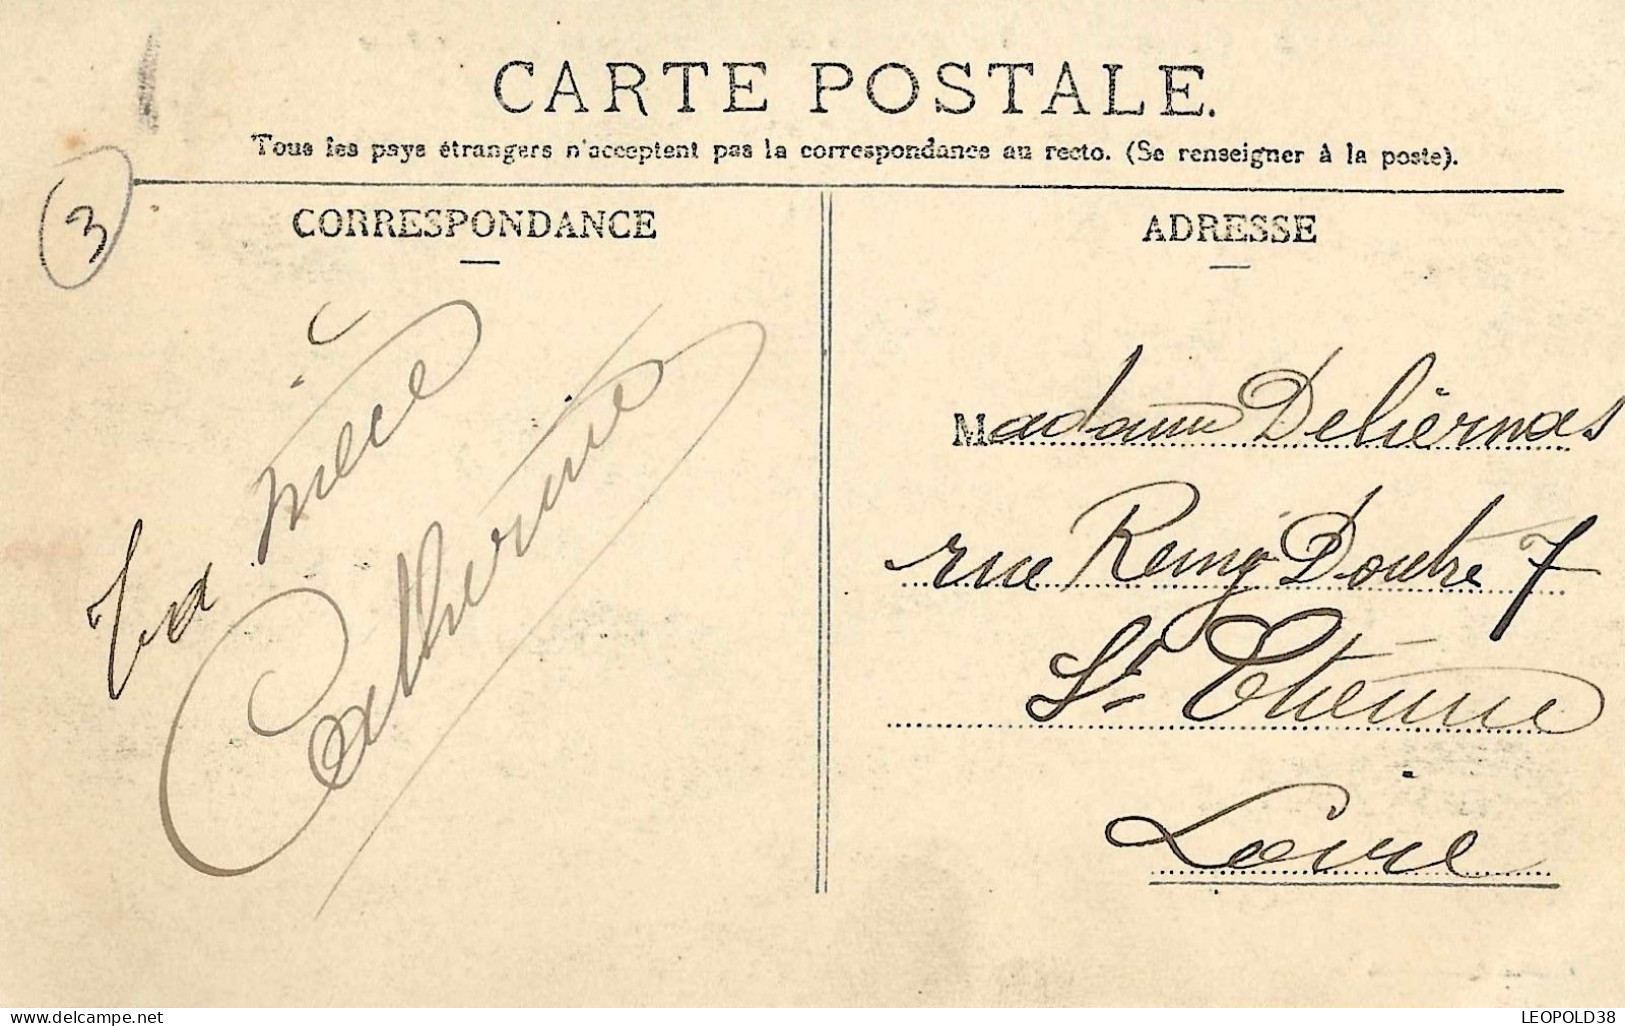 CARTE POSTALE.
Tous les pays étrangers n'acceptent pas la correspondance au recto. (Se renseigner à la poste).
3
CORRESPONDANCE
Ta nièce
Catherine
ADRESSE
Madame Delièrnas
rue Remy Doutre 7
St Etienne
Loire
www.delcampe.net
LEOPOLD38